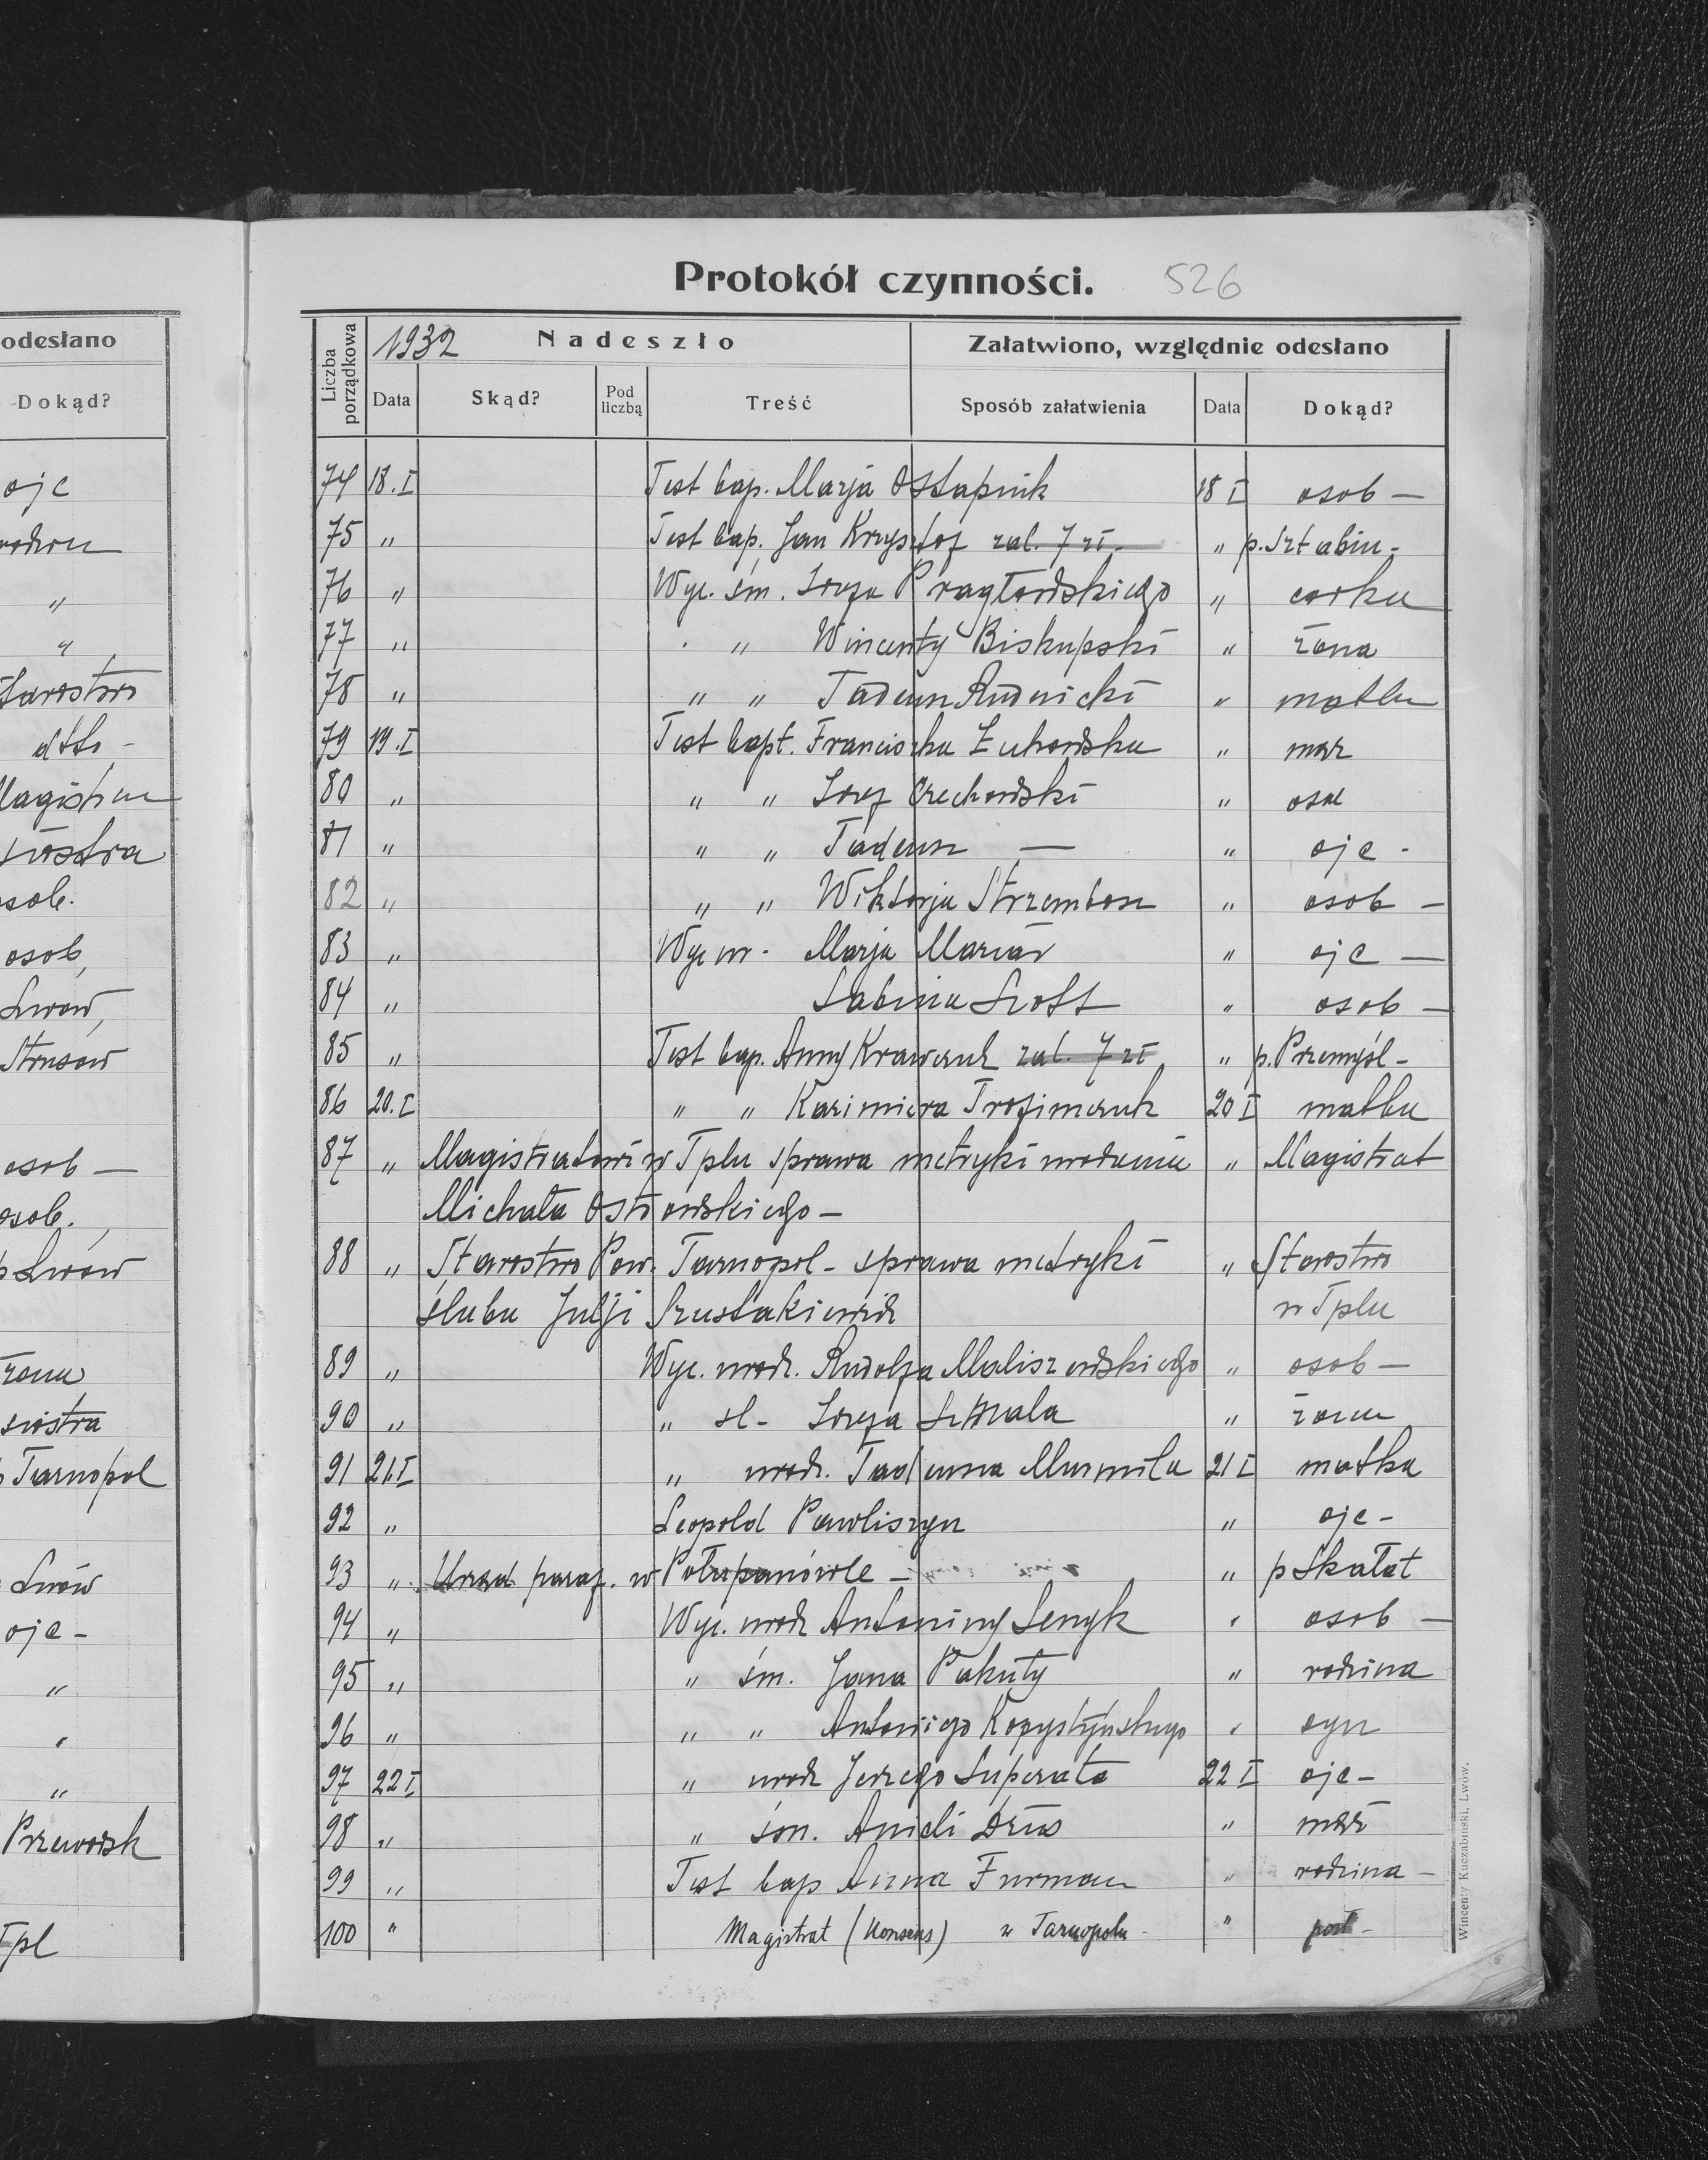 Protokół czynności. 526
odesłano
Dokąd?
oje
"
"
Starostwo
dtto -
siostra
osob.
osob,
Lwow,
Strusów
osob —
osob.
p Lwow
żona
siostra
p Tarnopol
Lwów
oje -
"
"
"
Przeworsk
Tpl
Liczba porządkowa 1932 Nadeszło Załatwiono, względnie odesłano
Data Skąd? Pod liczbą Treść Sposób załatwienia Data Dokąd?
74 18.I Test bap. Marja Ostapiuk 18 I osob —
75 " Test bap. Jan Krysztof zal. 7 zł. " p. Sztabin -
76 " Wyc. śm. Józefa " corka
77 " " Wincenty Biskupski " żona
78 " " " Tadeusz Rudnicki " matka
79 19.I Test bapt. Franciszka Żukowska " mąz
80 " " " Józef Orechowski "
81 " " " Tadeusz — " oje -
82 " " " Wiktorja Strzembosz " osob —
83 " Wyc ur. Marja " oje —
84 " Sabina Szott " osob —
85 " Test bap. Anny Krawczuk zal. 7 zł " p. Przemyśl -
86 20.I " " Kazimiera Trofimczuk 20 I matka
87 " Magistratowi w Tplu sprawa metryki urodzenia " Magistrat
Michała Ostrowskiego —
88 " Starostwo Pow. Tarnopol - sprawa metryki " Starostwo
ślubu Julji Szustakiewicz w Tplu
89 " Wyc. urodz. Rudolfa Maliszewskiego " osob —
90 " " śl - Józefa " żona
91 21 I " urodz. Tadeusza Murmiła 21 I matka
92 " Leopold Pawliszyn " oje -
93 " Urząd paraf. w Połupanówce — " p Skałat
94 " Wyc. urodz Antoniny Senyk " osob —
95 " " śm. Jana Pakuty " rodzina
96 " " " Antoniego Kopystyńskiego " syn
97 22 I " urodz Jerzego Superata 22 I oje -
98 " " śm. Anieli Dzius " mąż
99 " Test bap Anna Furman " rodzina —
100 " Magistrat (Konsens) w Tarnopolu - "
Wincenty Kuczabiński, Lwów.